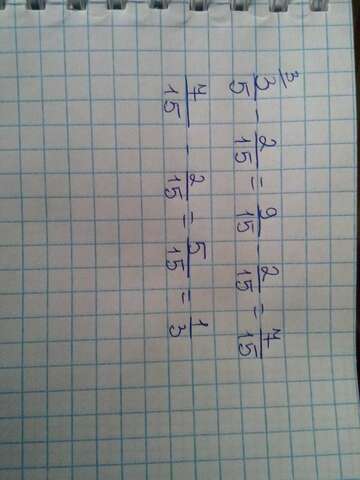 3/5 ³ - 2/15 = 9/15 - 2/15 = 7/15
7/15 - 2/15 = 5/15 = 1/3